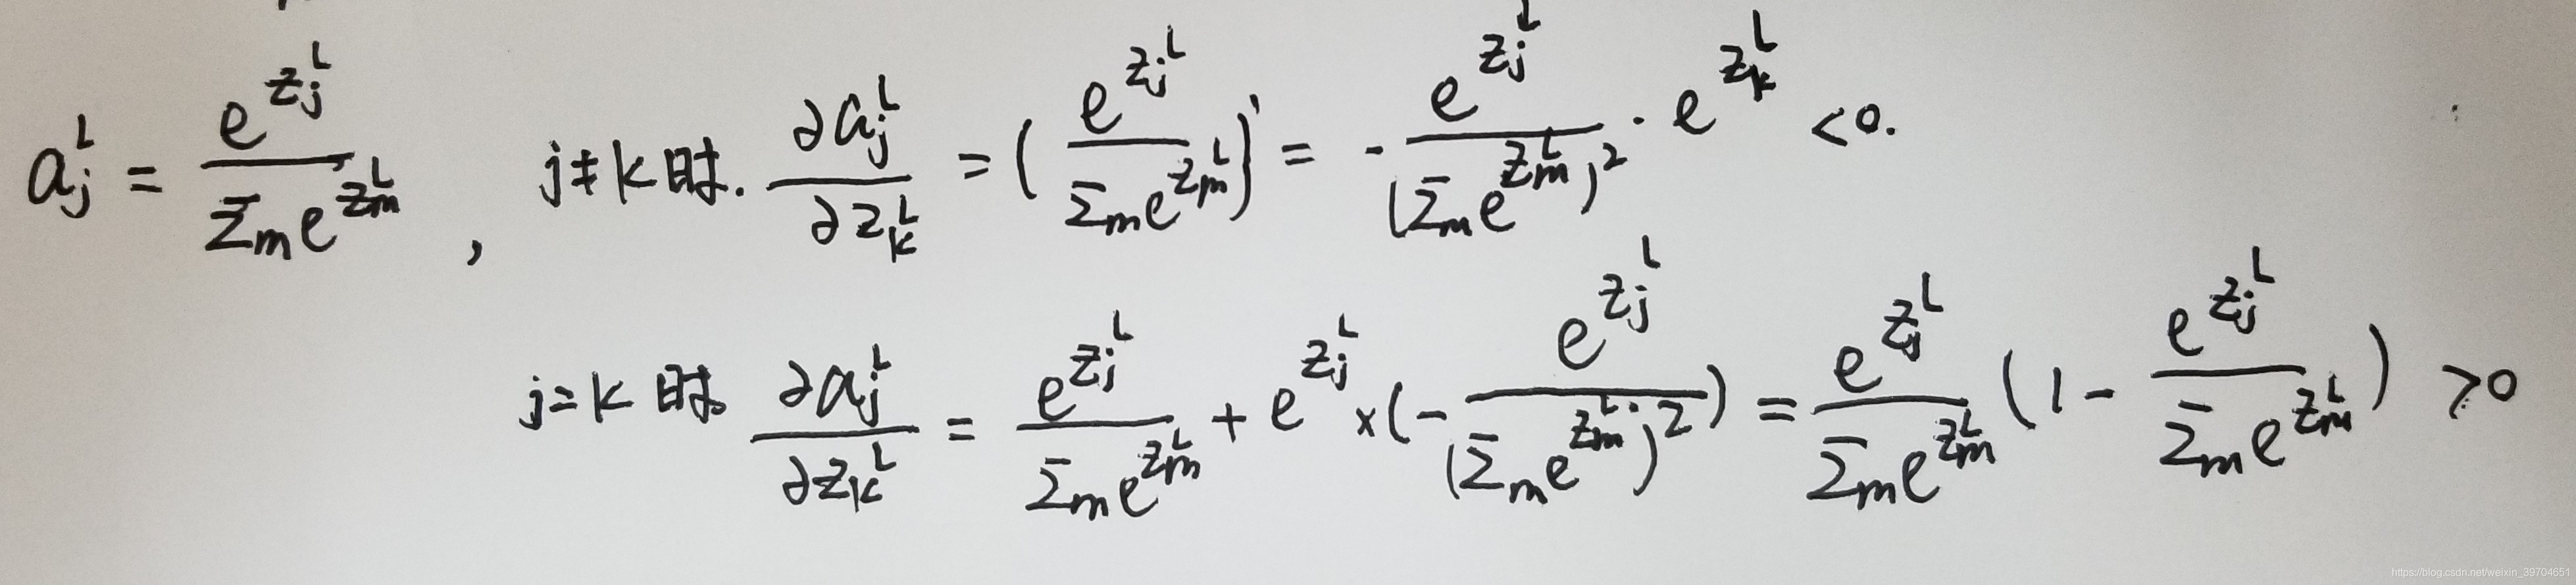 $a_j^L = \frac{e^{z_j^L}}{\Sigma_m e^{z_m^L}}$, j≠k时. $\frac{\partial a_j^L}{\partial z_k^L} = \left( \frac{e^{z_j^L}}{\Sigma_m e^{z_m^L}} \right)' = - \frac{e^{z_j^L}}{(\Sigma_m e^{z_m^L})^2} \cdot e^{z_k^L} < 0.$
j=k时. $\frac{\partial a_j^L}{\partial z_k^L} = \frac{e^{z_j^L}}{\Sigma_m e^{z_m^L}} + e^{z_j^L} \times \left( - \frac{e^{z_j^L}}{(\Sigma_m e^{z_m^L})^2} \right) = \frac{e^{z_j^L}}{\Sigma_m e^{z_m^L}} \left( 1 - \frac{e^{z_j^L}}{\Sigma_m e^{z_m^L}} \right) > 0$
https://blog.csdn.net/weixin_39704651